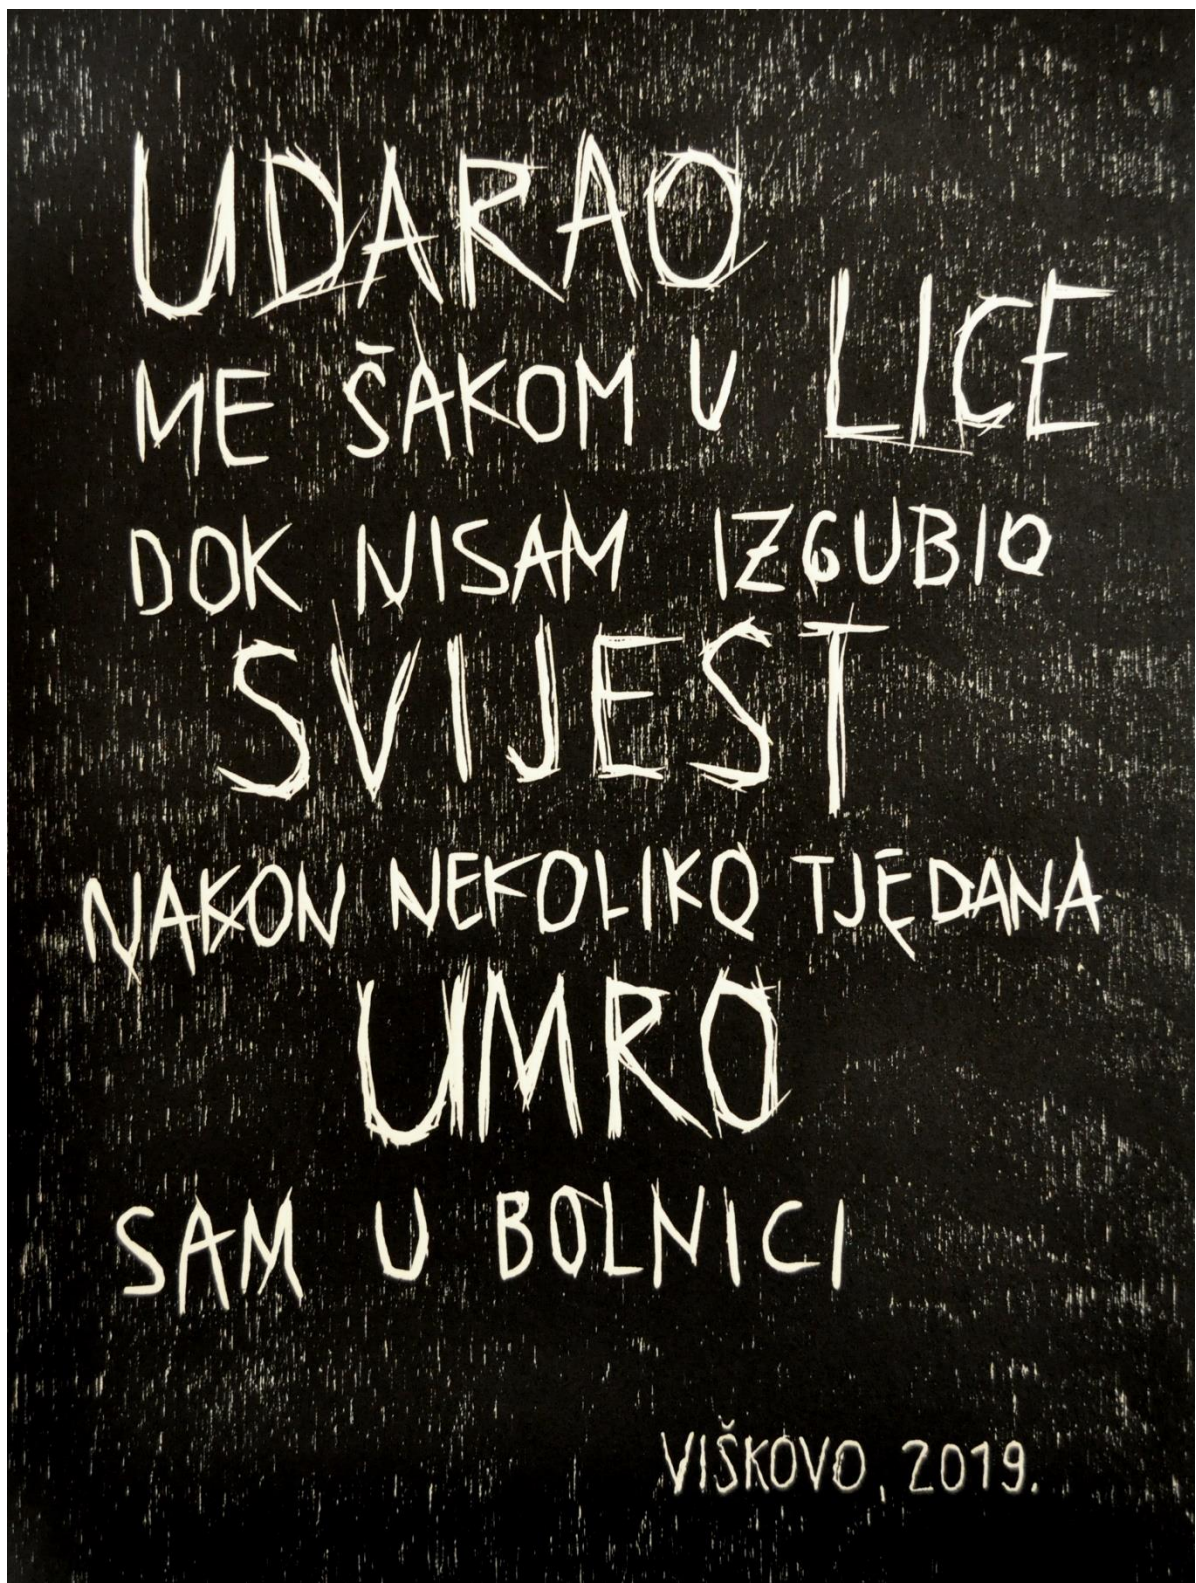 UDARAO
ME ŠAKOM U LICE
DOK NISAM IZGUBIO
SVIJEST
NAKON NEKOLIKO TJEDANA
UMRO
SAM U BOLNICI
VIŠKOVO, 2019.